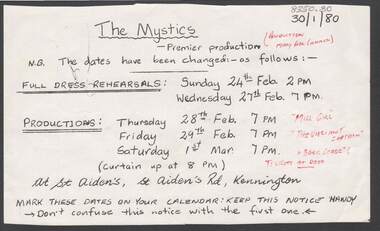 8550.30
30/1/80
The Mystics
— Premier production
N.B. The dates have been changed:- as follows:-
FULL DRESS-REHEARSALS: Sunday 24th Feb. 2 PM
Wednesday 27th Feb. 7 PM.
PRODUCTIONS: Thursday 28th Feb. 7 PM "Mill Girl"
Friday 29th Feb. 7 PM
Saturday 1st Mar. 7 PM.
(Curtain up at 8 PM)
At St Aiden's, St Aiden's Rd, Kennington
MARK THESE DATES ON YOUR CALENDAR: KEEP THIS NOTICE HANDY
→ Don't confuse this notice with the first one. ←